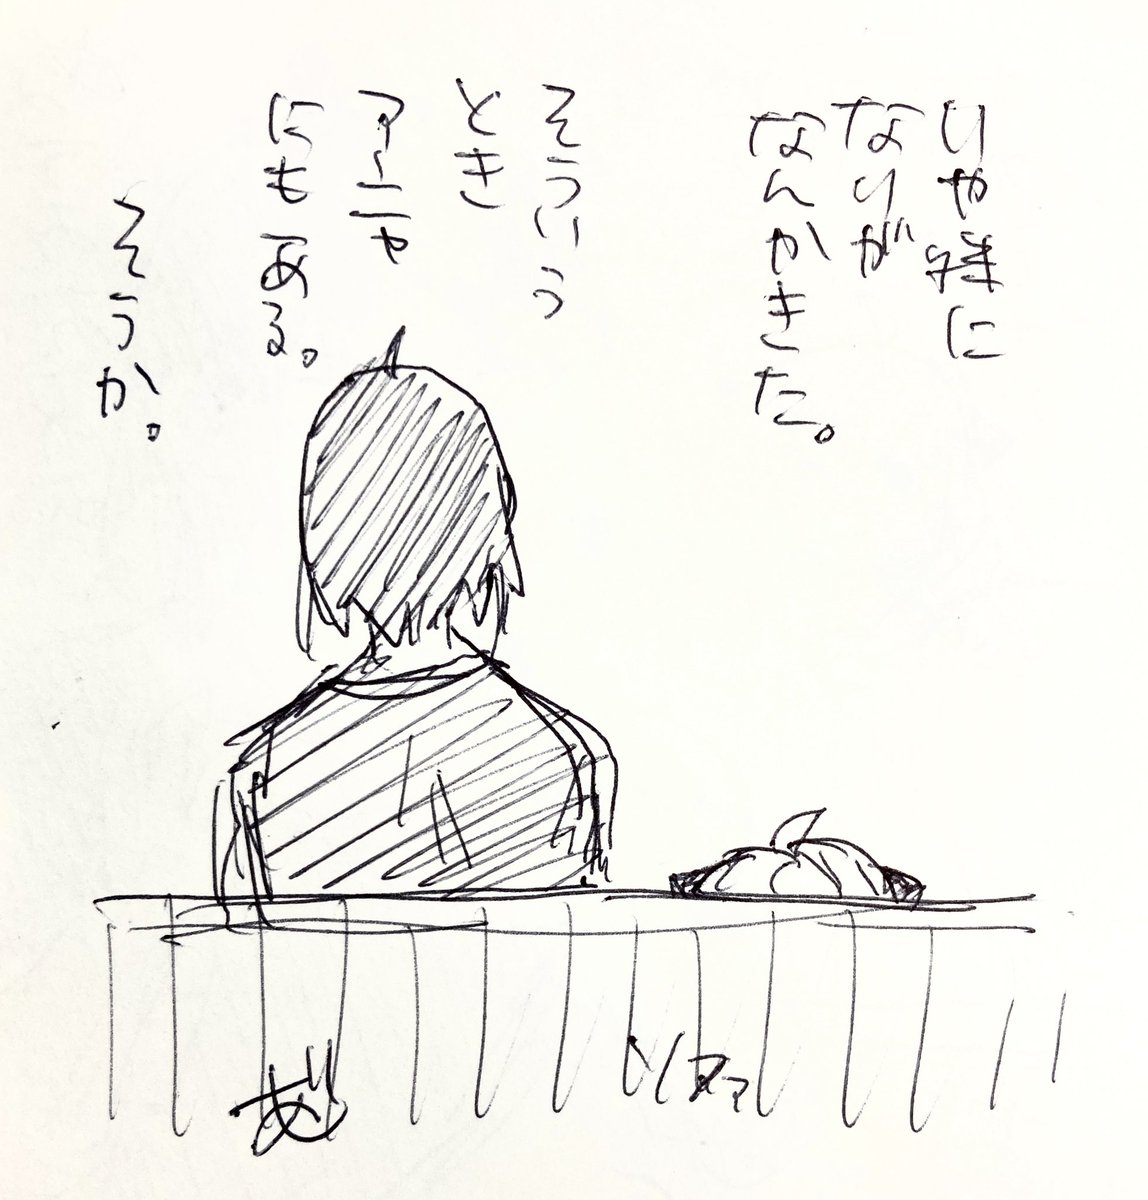 りや様に
なりが
なんかきた。
そういう
とき
アーニャ
にもある。
そうか。
ソファ